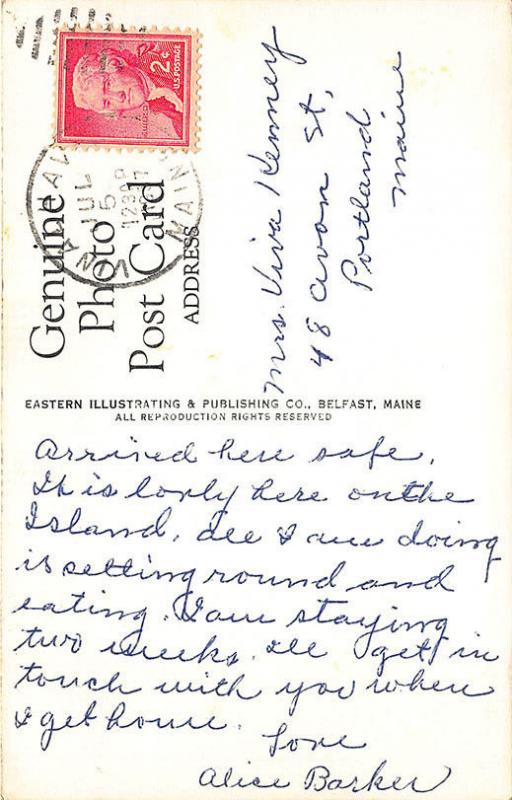 2¢
U.S. POSTAGE
JEFFERSON
VINALHAVEN
JUL
5
12 30 P
MAINE
Genuine
Photo
Post Card
ADDRESS
Mrs. Viva Kenney
48 Avon St,
Portland
Maine
EASTERN ILLUSTRATING & PUBLISHING CO., BELFAST, MAINE
ALL REPRODUCTION RIGHTS RESERVED
Arrived here safe.
It is lovly here on the
Island, all I am doing
is setting round and
eating. I am staying
two weeks. Ill get in
touch with you when
I get home.
Love
Alice Barker